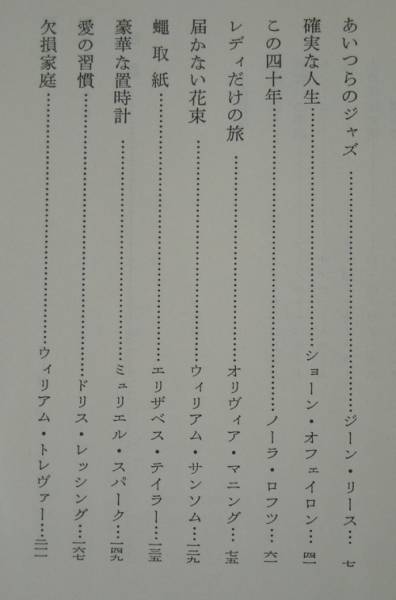 あいつらのジャズ……ジーン・リース…七
確実な人生……ショーン・オフェイロン…四一
この四十年……ノーラ・ロフツ…六一
レディだけの旅……オリヴィア・マニング…七五
届かない花束……ウィリアム・サンソム…一二九
蠅取紙……エリザベス・テイラー…一三五
豪華な置時計……ミュリエル・スパーク…一四九
愛の習慣……ドリス・レッシング…一六七
欠損家庭……ウィリアム・トレヴァー…二一一